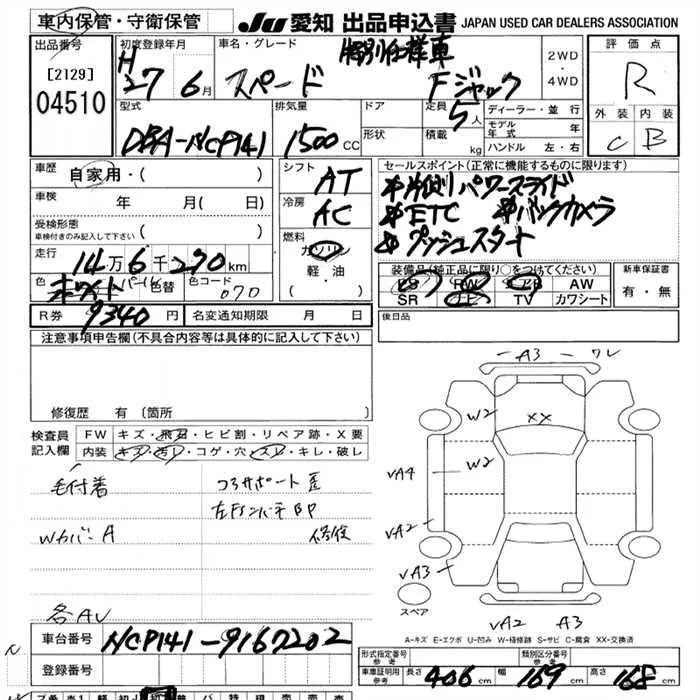 車内保管・守衛保管
JU 愛知 出品申込書 JAPAN USED CAR DEALERS ASSOCIATION
出品番号
[2129]
04510
初度登録年月
H27 6月
車名・グレード
特別仕様車
スペード Fジャック
2WD・4WD
評価点
R
外装 内装
C B
型式
DBA-NCP141
排気量
1500 CC
ドア
形状
定員
5人
積載 kg
ディーラー・並行
モデル年式 年
ハンドル 左・右
車歴
自家用・( )
車検
年 月( 日)
受検形態
車検付きのみ記入して下さい ( )
走行
14万6千270km
色
ホワイトパール
色替
色コード
070
シフト
AT
冷房
AC
燃料
ガソリン
軽・油
・( )
セールスポイント(正常に機能するものに限ります)
片側パワースライド
ETC バックカメラ
プッシュスタート
装備品(純正品に限り○をつけてください)
PS PW AB AW
SR ナビ TV カワシート
新車保証書
有・無
R券
9340円
名変通知期限 月 日
後日品
注意事項申告欄(不具合内容等は具体的に記入して下さい)
修復歴 有 〔箇所
検査員記入欄
FW キズ・飛石・ヒビ割・リペア跡・X要
内装 キズ・汚レ・コゲ・穴・スレ・キレ・破レ
毛付着
コアサポート歪
Wカバー A
修復
各AU
A3 ワレ
W2 XX
W2
VA4
VA2
VA3
スペア
VA2 A3
A-キズ E-エクボ U-凹み W-補修跡 S-サビ C-腐食 XX-交換済
車台番号
NCP141-9167202
登録番号
形式指定番号 参考
類別区分番号 参考
車庫証明用 参考
長さ 406cm 幅 169cm 高さ 168cm